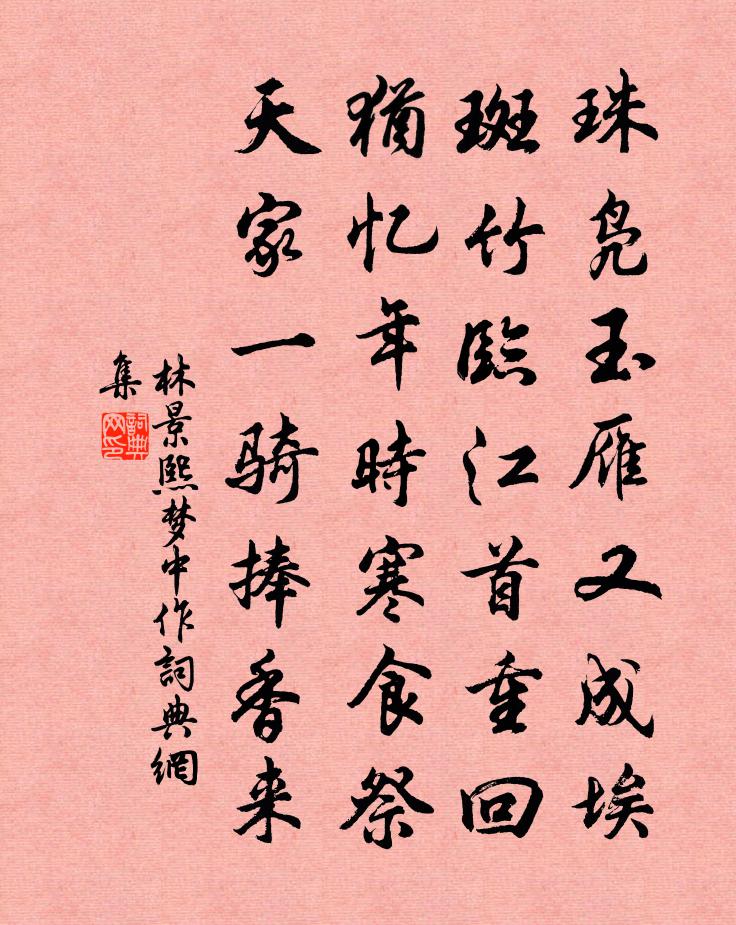 珠凫玉雁又成埃
斑竹臨江首重回
猶忆年時寒食祭
天家一骑捧香来
林景熙梦中作詞典網
集
詞典
网印